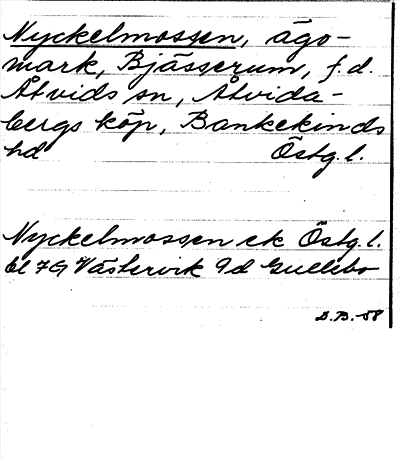 Nyckelmossen, ägo-
mark, Bjässerum, f.d.
Åtvids sn, Åtvida-
bergs köp, Bankekinds
hd Östg. l.
Nyckelmossen ek Östg. l.
bl 7G Västervik 9d Gullebo
B.-58